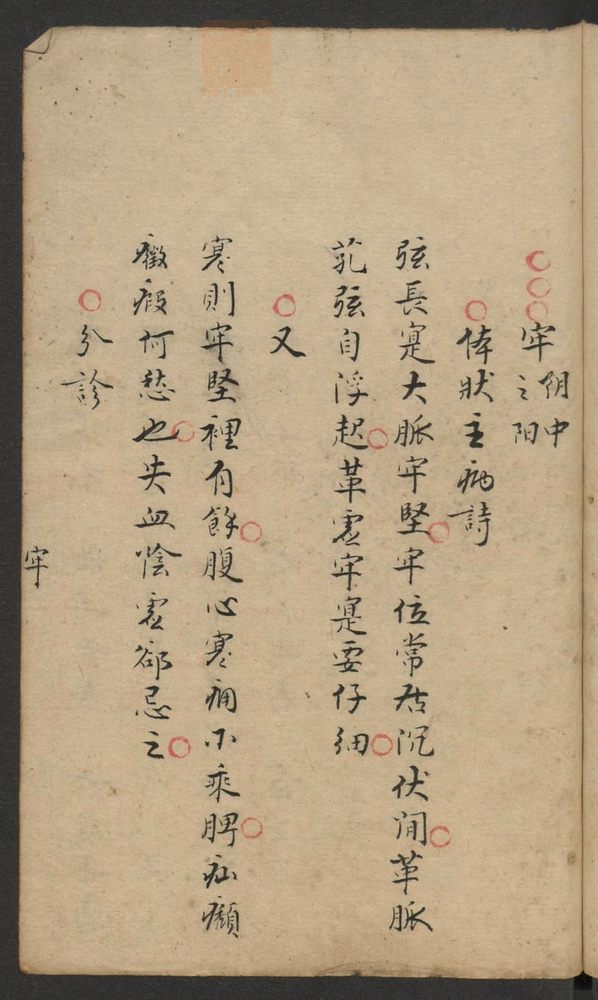 牢阴中之阳
体狀主病詩
弦長寔大脈牢堅牢位常居沉伏间革脈
芤弦自浮起革虚牢寔要仔细
又
寒則牢堅裡有餘腹心寒痛木乘脾疝癪
癥瘕何愁也失血陰虚郤忌之
分診
牢